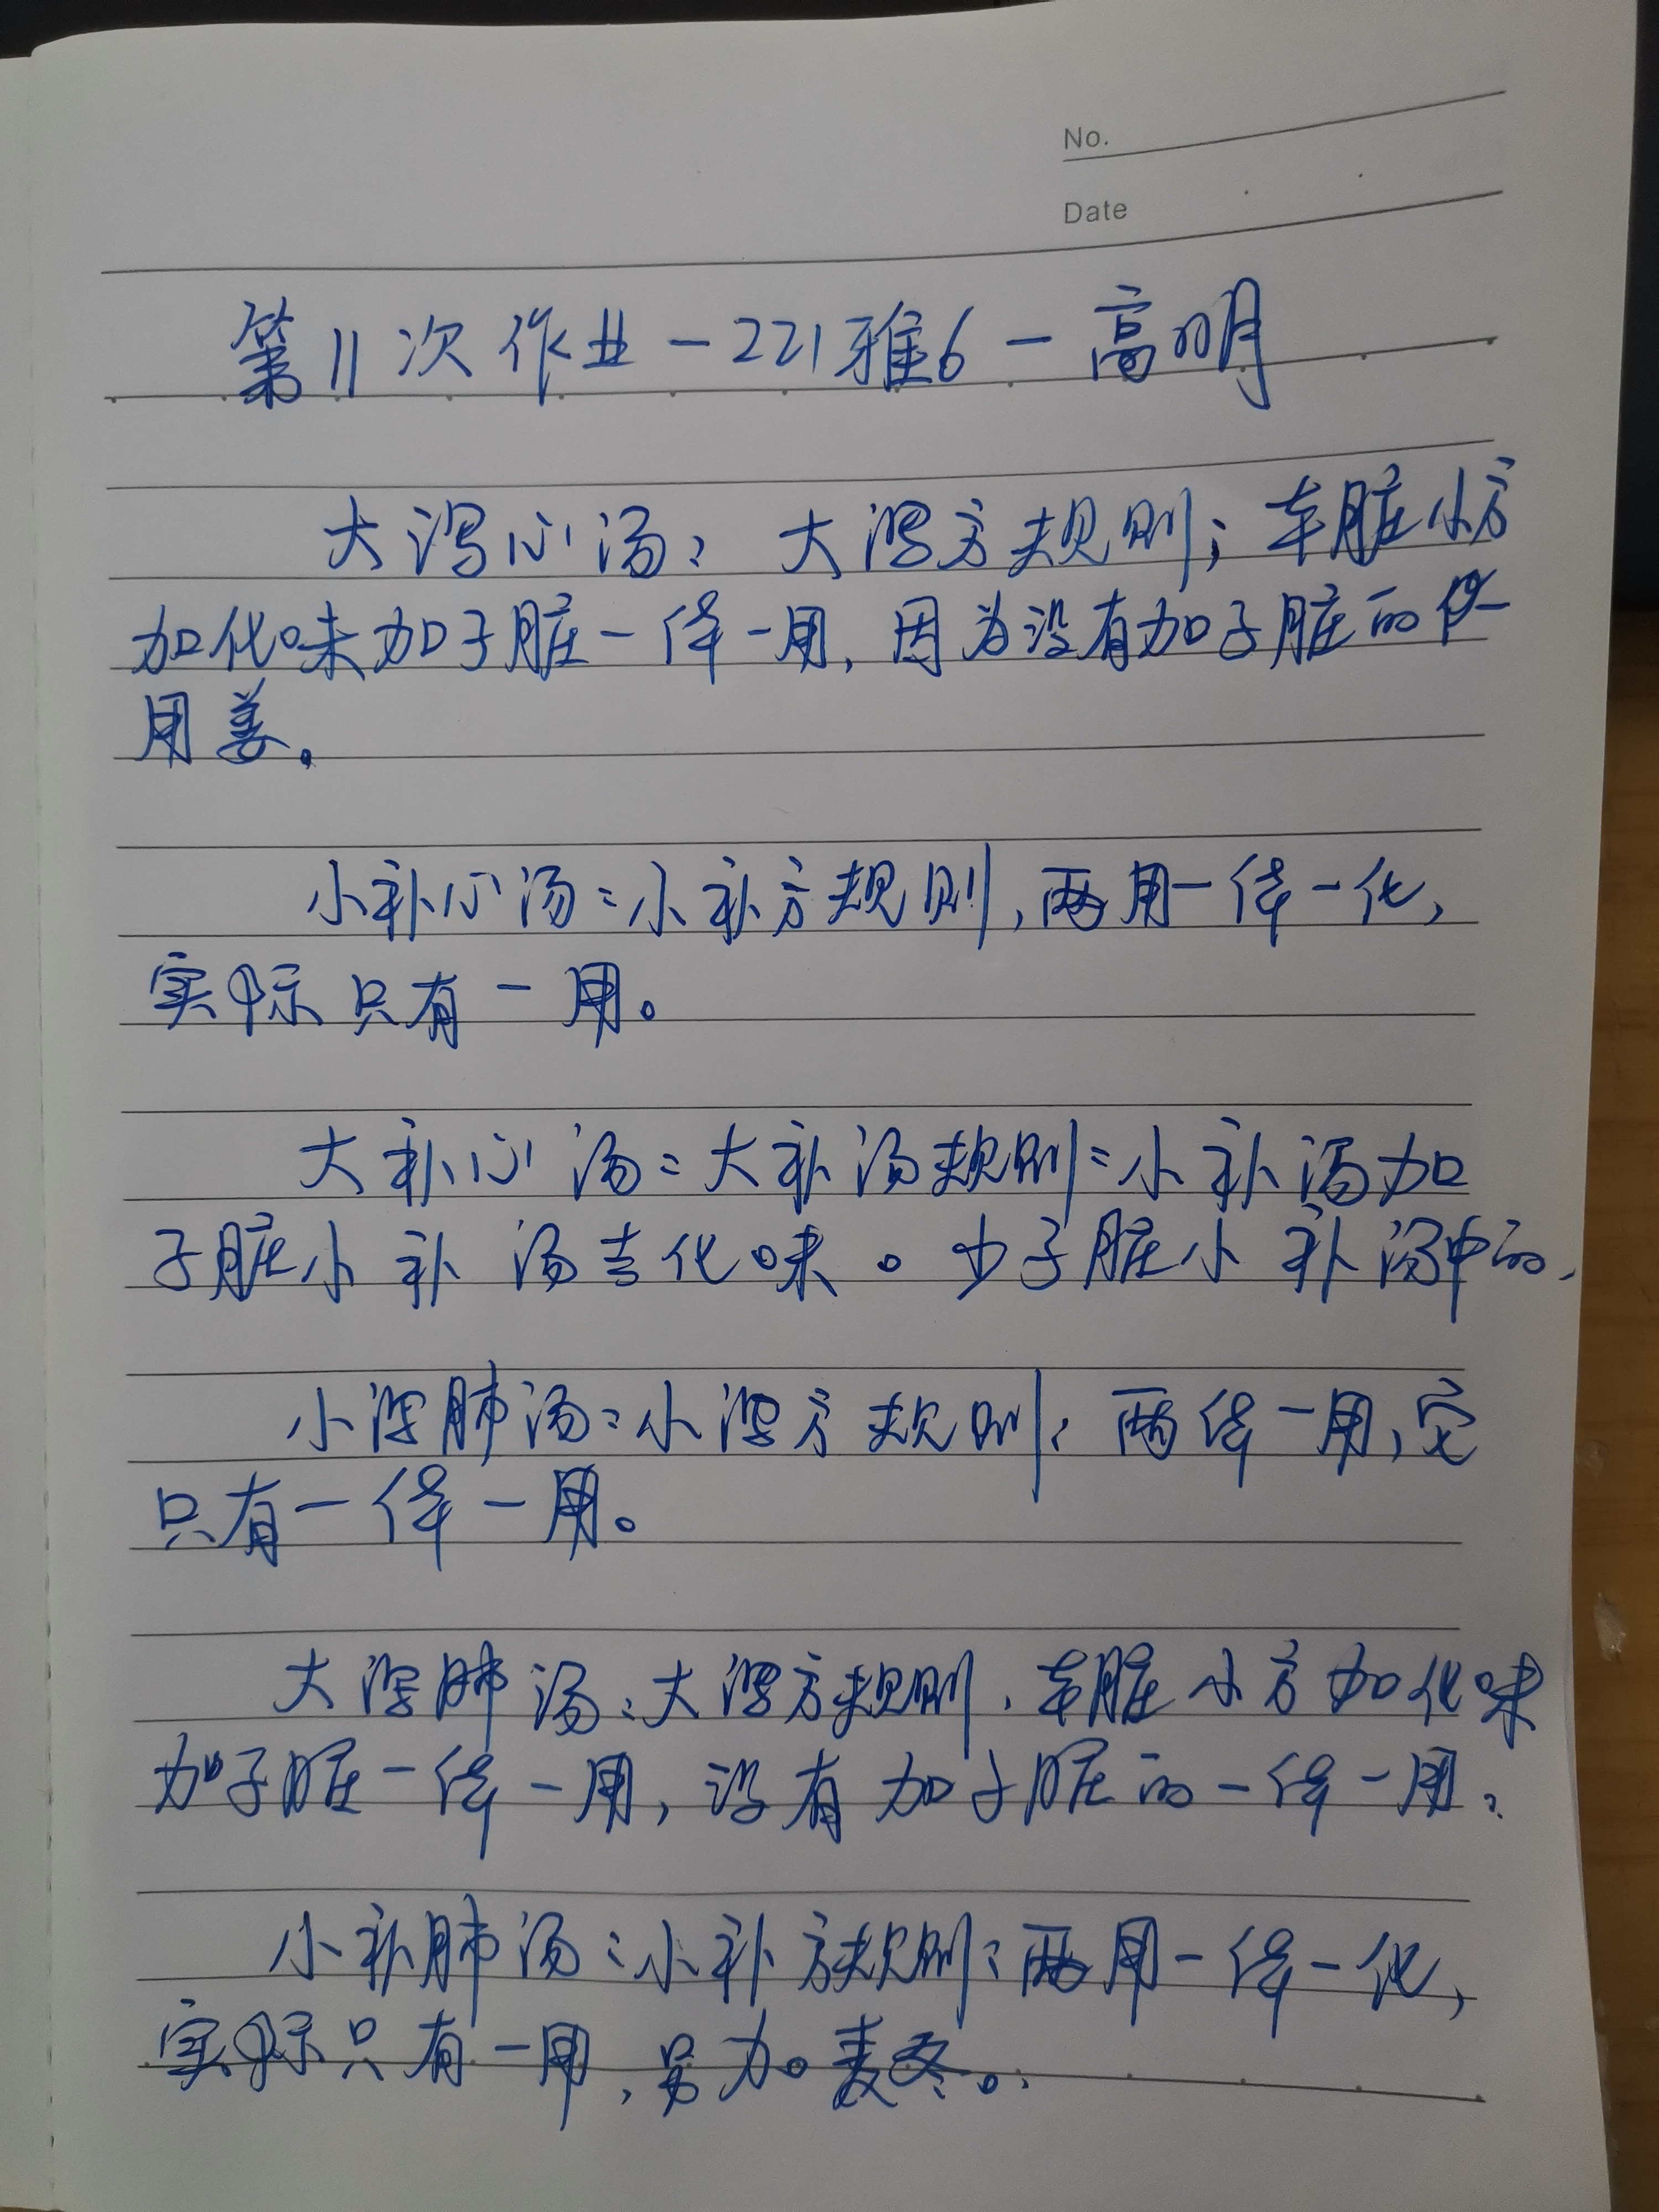 No.
Date
第11次作业-221雅6-高明
大泻心汤：大泻方规则；本脏小方
加化味加子脏一体一用，因为没有加子脏的体
用姜。
小补心汤：小补方规则，两用一体一化，
实际只有一用。
大补心汤：大补汤规则：小补汤加
子脏小补汤去化味。少子脏小补汤中的，
小泻肺汤：小泻方规则，两体一用，它
只有一体一用。
大泻肺汤：大泻方规则，本脏小方加化味
加子脏一体一用，没有加子脏的一体一用。
小补肺汤：小补方规则：两用一体一化，
实际只有一用，另加麦冬。